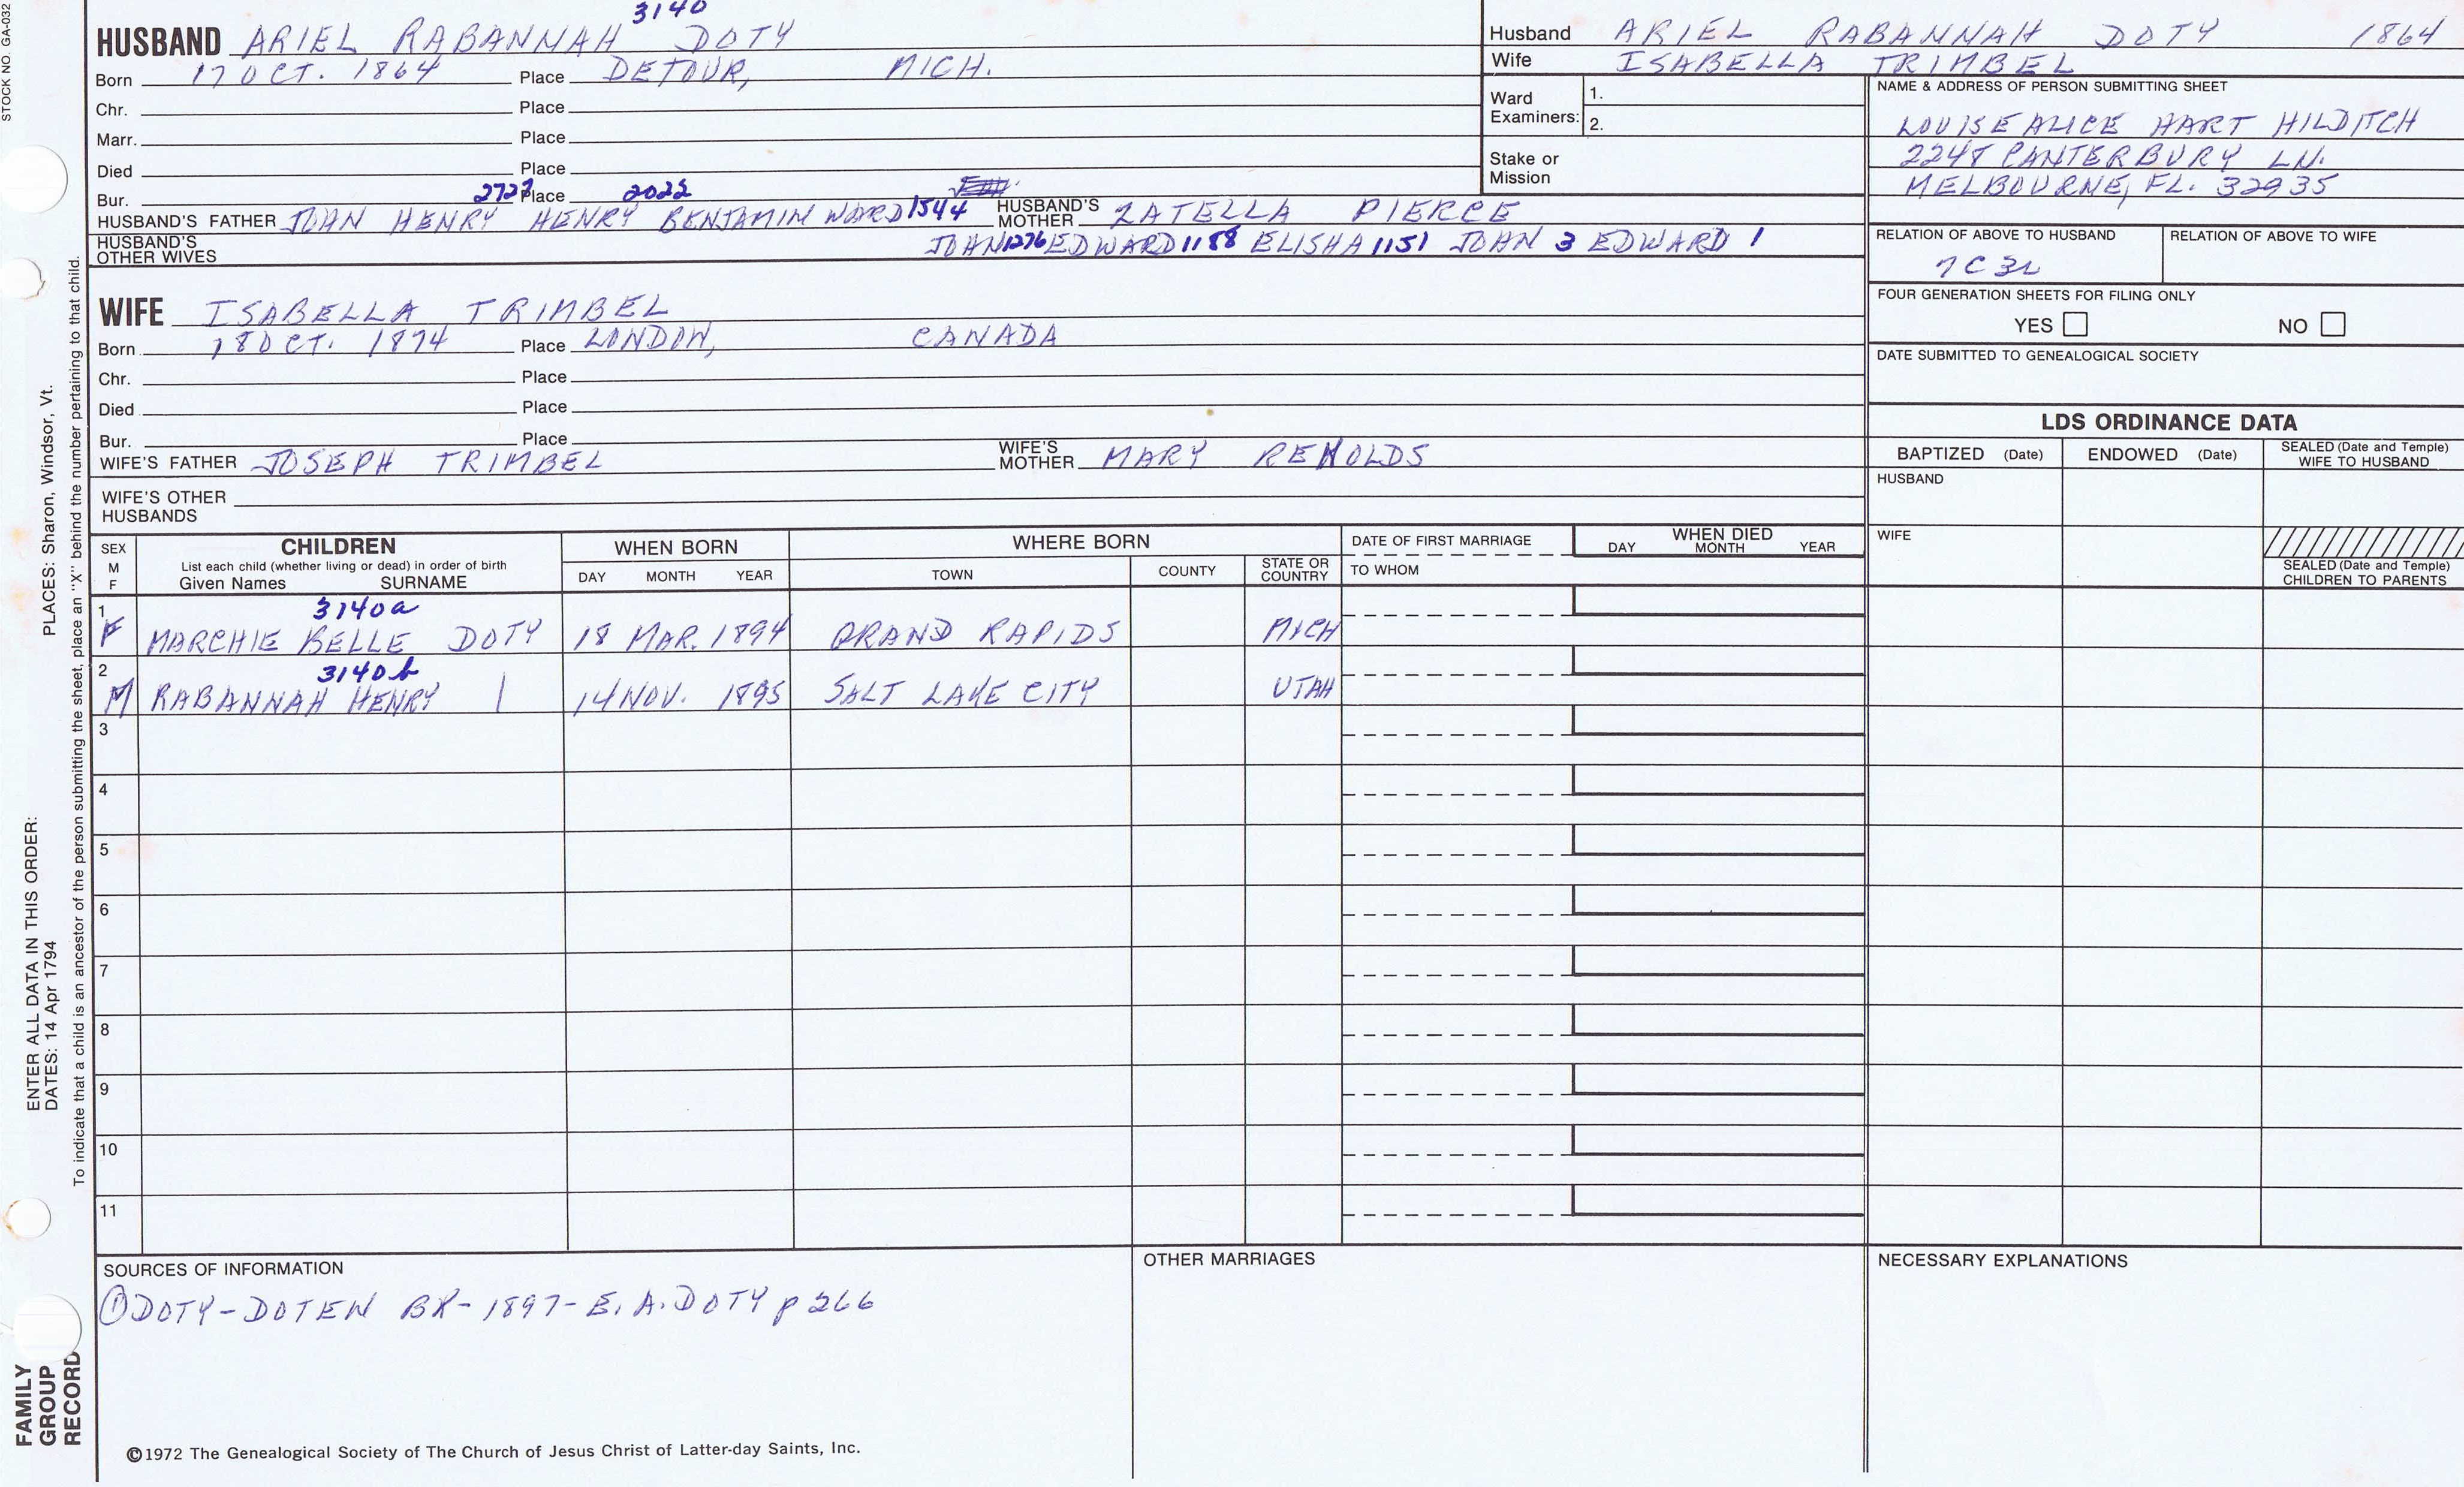 STOCK NO. GA-032
3140
HUSBAND ARIEL RABANNAH DOTY
Born 17 OCT. 1864 Place DETOUR, MICH.
Chr. Place
Marr. Place
Died Place
Bur. 2727 Place 2022
HUSBAND'S FATHER JOHN HENRY HENRY BENJAMIN WARD 1544 HUSBAND'S MOTHER ZATELLA PIERCE
HUSBAND'S OTHER WIVES JOHN 1276 EDWARD 1188 ELISHA 1151 JOHN 3 EDWARD 1
Husband ARIEL RABANNAH DOTY 1864
Wife ISABELLA TRIMBEL
Ward Examiners: 1.
2.
Stake or Mission
NAME & ADDRESS OF PERSON SUBMITTING SHEET
LOUISE ALICE HART HILDITCH
2248 CANTERBURY LN.
MELBOURNE, FL. 32935
RELATION OF ABOVE TO HUSBAND RELATION OF ABOVE TO WIFE
7C 3R
FOUR GENERATION SHEETS FOR FILING ONLY
YES NO
DATE SUBMITTED TO GENEALOGICAL SOCIETY
WIFE ISABELLA TRIMBEL
Born 18 OCT. 1874 Place LONDON, CANADA
Chr. Place
Died Place
Bur. Place
WIFE'S FATHER JOSEPH TRIMBEL WIFE'S MOTHER MARY RENOLDS
WIFE'S OTHER HUSBANDS
LDS ORDINANCE DATA
BAPTIZED (Date) ENDOWED (Date) SEALED (Date and Temple) WIFE TO HUSBAND
HUSBAND
WIFE
SEALED (Date and Temple) CHILDREN TO PARENTS
SEX M F
CHILDREN
List each child (whether living or dead) in order of birth
Given Names SURNAME
WHEN BORN
DAY MONTH YEAR
WHERE BORN
TOWN COUNTY STATE OR COUNTRY
DATE OF FIRST MARRIAGE
TO WHOM
WHEN DIED
DAY MONTH YEAR
1 3140a
F MARCHIE BELLE DOTY 18 MAR. 1894 GRAND RAPIDS MICH
2 3140b
M RABANNAH HENRY | 14 NOV. 1895 SALT LAKE CITY UTAH
3
4
5
6
7
8
9
10
11
SOURCES OF INFORMATION
① DOTY-DOTEN BK-1897-E. A. DOTY p 266
OTHER MARRIAGES
NECESSARY EXPLANATIONS
©1972 The Genealogical Society of The Church of Jesus Christ of Latter-day Saints, Inc.
FAMILY GROUP RECORD
ENTER ALL DATA IN THIS ORDER:
DATES: 14 Apr 1794
PLACES: Sharon, Windsor, Vt.
To indicate that a child is an ancestor of the person submitting the sheet, place an "X" behind the number pertaining to that child.